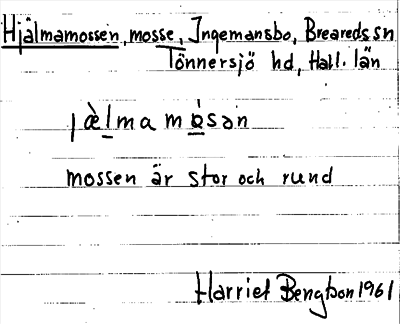 Hjälmamossen, mosse, Ingemansbo, Breareds sn
Tönnersjö hd, Hall. län
jæ̀lmamósən
mossen är stor och rund
Harriet Bengtson 1961